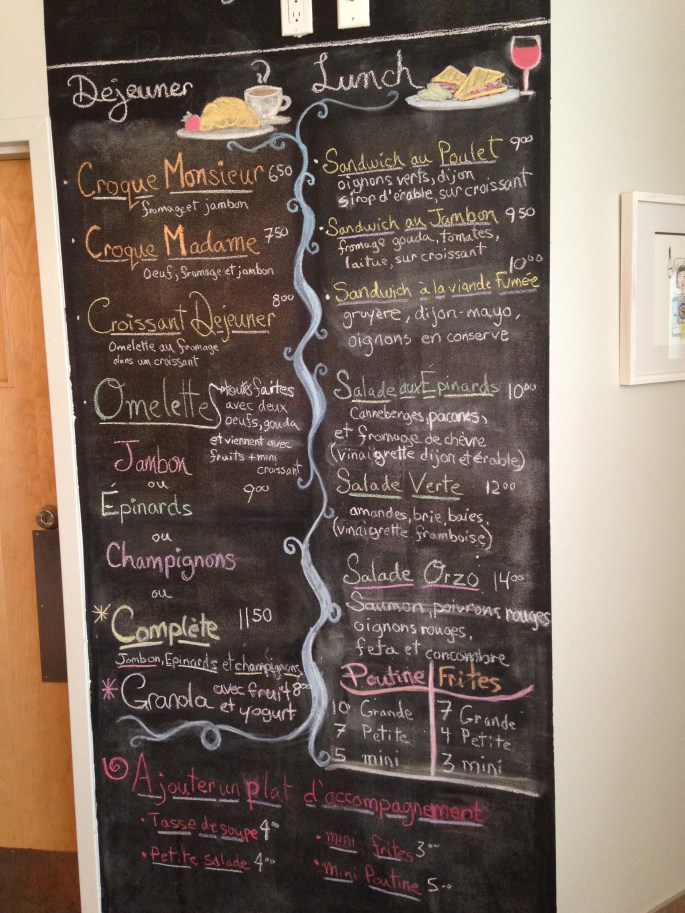 Déjeuner
Croque Monsieur 650
fromage et jambon
Croque Madame 750
Oeuf, fromage et jambon
800
Croissant Déjeuner
Omelette au fromage
dans un croissant
Omelette toutes faites
avec deux
oeufs, gouda
et viennent avec
fruits + mini
croissant
900
Jambon
ou
Épinards
ou
Champignons
ou
Complète 1150
Jambon, Epinards et champignons
Granola avec fruit 800
et yogurt
Lunch
Sandwich au Poulet 900
oignons verts, dijon
sirop d'érable, sur croissant
Sandwich au Jambon 950
fromage gouda, tomates,
laitue, sur croissant
1000
Sandwich à la viande Fumée
gruyère, dijon-mayo,
oignons en conserve
Salade aux Epinards 1000
Canneberges, pacanes,
et fromage de chèvre
(vinaigrette dijon et érable)
Salade Verte 1200
amandes, brie, baies,
(vinaigrette framboise)
Salade Orzo 1400
Saumon, poivrons rouges
oignons rouges,
feta et concombre
Poutine Frites
10 Grande 7 Grande
7 Petite 4 Petite
5 mini 3 mini
Ajouter un plat d'accompagnement
• Tasse de soupe 400
• Petite salade 400
• mini frites 300
• mini Poutine 5-00